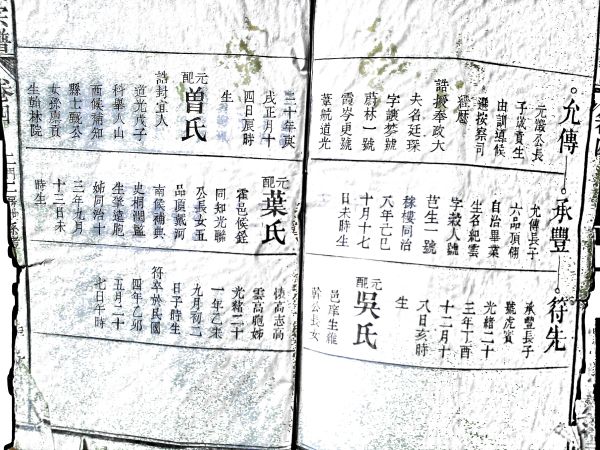 允傳
元瀲公長
子歲貢生
由訓導候
選按察司
經歷
誥授奉政大
夫名廷琛
字讓棼號
蔚林一號
霞岑更號
葦航道光
三十年庚
戌正月十
四日辰時
生
元配曾氏
誥封宜人
道光戊子
科舉人山
西候補知
縣士驥公
女孫廣貢
生翰林院
承豐
允傳長子
六品頂備
自治畢業
生名紀雲
字穀人號
芑生一號
稼樓同治
八年己巳
十月十七
日未時生
元配葉氏
霍邑候銓
同知光聯
公長女五
品頂戴河
南候補典
史桐潤監
生肇遠胞
姊同治十
三年九月
十三日未
時生
符先
承豐長子
號虎賓
光緒二十
三年丁酉
十二月十
八日亥時
生
元配吳氏
邑庠生維
幹公長女
雲高胞姊
光緒二十
一年乙未
九月初二
日子時生
符卒於民國
四年乙卯
五月二十
七日午時